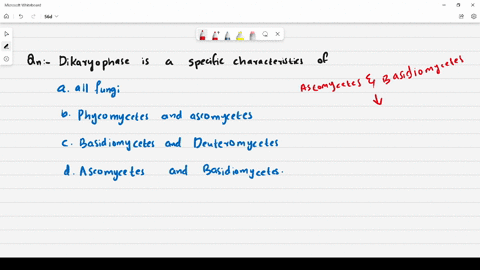 Microsoft Whiteboard
Qn:- Dikaryophase is a specific characteristics of
a. all fungi
Ascomycetes & Basidiomycetes
b. Phycomycetes and ascomycetes
c. Basidiomycetes and Deuteromycetes
d. Ascomycetes and Basidiomycetes.